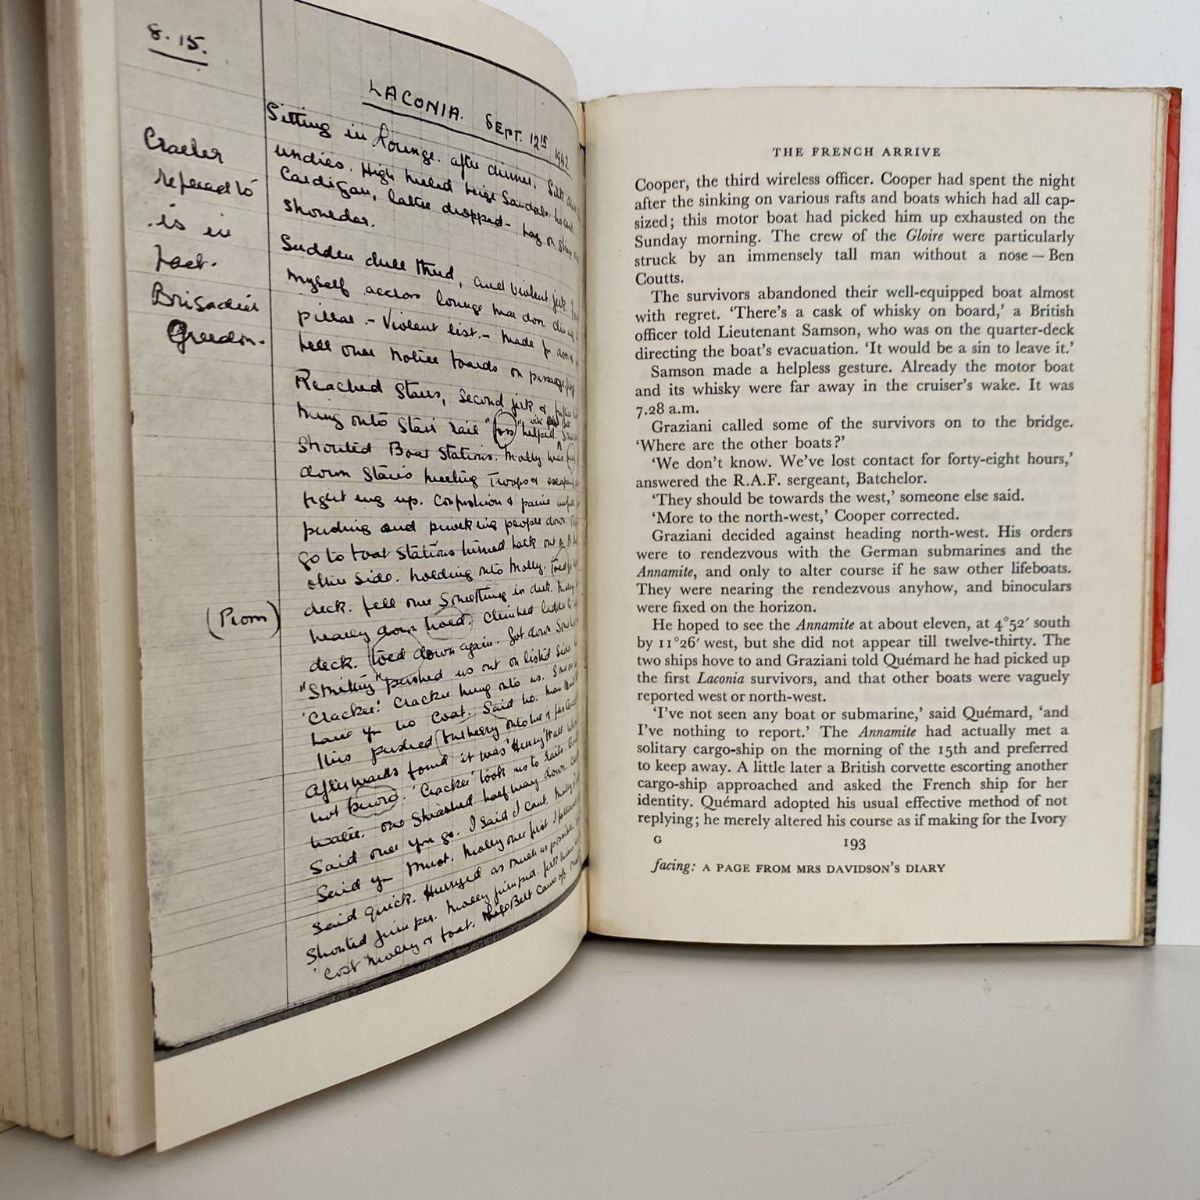 8.15.
LACONIA. SEPT. 12th 1942
Sitting in Lounge. after dinner. Silk
undies. High heeled beige Sandals.
Cardigan, latter dropped - hag on
Shoulder.
Cracker
refered to
is in
fact.
Brigadier
Creedon.
Sudden dull thud, and violent jerk
myself across lounge
pillar. - Violent list. - Made for
fell over notice boards on passage
Reached Stairs, Second jerk &
hung onto Stair rail helped.
Shouted Boat Stations. Molly was
down Stairs meeting Troops &
fight ing up. Confushion & panic
pushing and people down.
go to boat Stations turned back out
other Side. holding onto Molly.
(Prom)
deck. fell over Something in dark.
heavy down
deck. down again. Got down
"Strutting" pushed us out on listed Side
'Cracker'. Cracker hung onto us.
have you no Coat. Said no. man
this pushed onto me
Afterwards found it was 'Henry'
not 'Cracker' took us to rails.
water. one Smashed half way down.
Said over you go. I said I Can't. Molly
Said you must. Molly over first I followed
Said quick. Hurried as much as possible,
Shouted jump. Molly jumped.
'Cost Molly & boat. Belt Came off
THE FRENCH ARRIVE
Cooper, the third wireless officer. Cooper had spent the night
after the sinking on various rafts and boats which had all cap-
sized; this motor boat had picked him up exhausted on the
Sunday morning. The crew of the Gloire were particularly
struck by an immensely tall man without a nose – Ben
Coutts.
The survivors abandoned their well-equipped boat almost
with regret. 'There's a cask of whisky on board,' a British
officer told Lieutenant Samson, who was on the quarter-deck
directing the boat's evacuation. 'It would be a sin to leave it.'
Samson made a helpless gesture. Already the motor boat
and its whisky were far away in the cruiser's wake. It was
7.28 a.m.
Graziani called some of the survivors on to the bridge.
'Where are the other boats?'
'We don't know. We've lost contact for forty-eight hours,'
answered the R.A.F. sergeant, Batchelor.
'They should be towards the west,' someone else said.
'More to the north-west,' Cooper corrected.
Graziani decided against heading north-west. His orders
were to rendezvous with the German submarines and the
Annamite, and only to alter course if he saw other lifeboats.
They were nearing the rendezvous anyhow, and binoculars
were fixed on the horizon.
He hoped to see the Annamite at about eleven, at 4°52' south
by 11°26' west, but she did not appear till twelve-thirty. The
two ships hove to and Graziani told Quémard he had picked up
the first Laconia survivors, and that other boats were vaguely
reported west or north-west.
'I've not seen any boat or submarine,' said Quémard, 'and
I've nothing to report.' The Annamite had actually met a
solitary cargo-ship on the morning of the 15th and preferred
to keep away. A little later a British corvette escorting another
cargo-ship approached and asked the French ship for her
identity. Quémard adopted his usual effective method of not
replying; he merely altered his course as if making for the Ivory
G 193
facing: A PAGE FROM MRS DAVIDSON'S DIARY